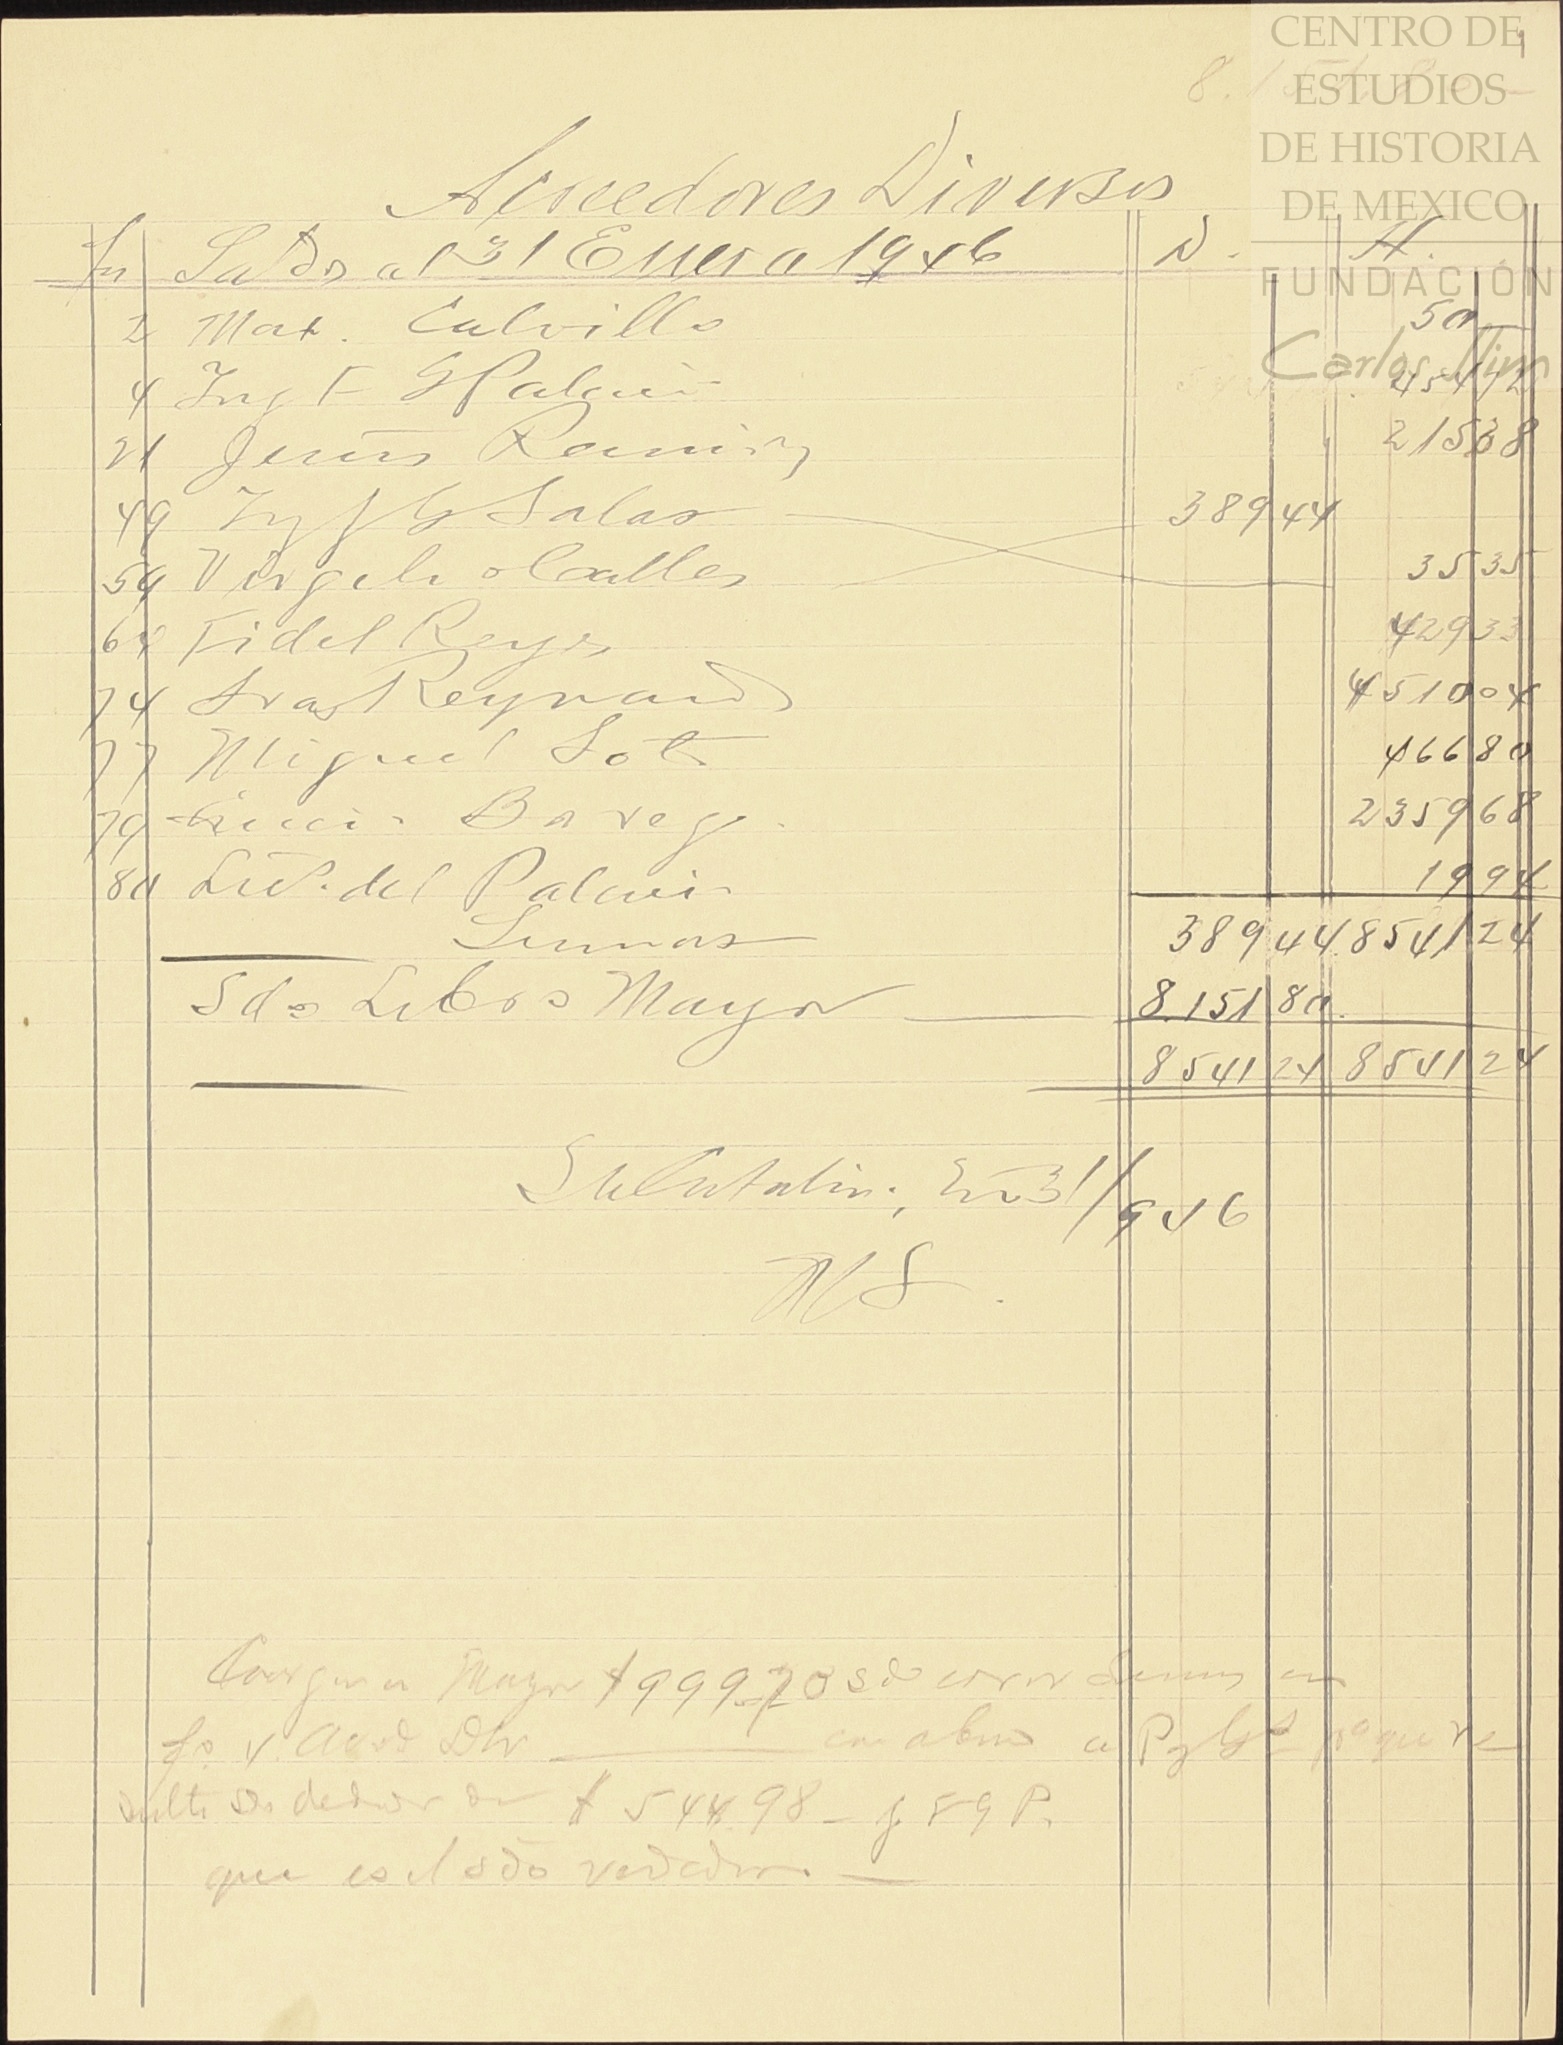 CENTRO DE
ESTUDIOS
DE HISTORIA
DE MEXICO
FUNDACIÓN
Carlos Slim
8.151.80
Acreedores Diversos
Saldos al 31 Enero 1946 D. H.
2 Mat. Calvillo 50
4 Ing F G Palacio 454 72
21 Jesús Ramirez 215 38
49 Salas 389 44
54 Virgilio Calles 35 35
64 Fidel Reyes 429 33
74 Reynaud 4510 04
77 Miguel Soto 466 80
79 Borrego 2359 68
80 Lic. del Palacio 19 94
Sumas 389 44 8541 24
Sdo Libro Mayor 8.151 80
8541 24 8541 24
Sta Catalina, En 31/946
Mayor $999.70 sdo error
fo. con abono a
sdo deudor $544.98 - f 59 P.
que es el sdo verdadero.